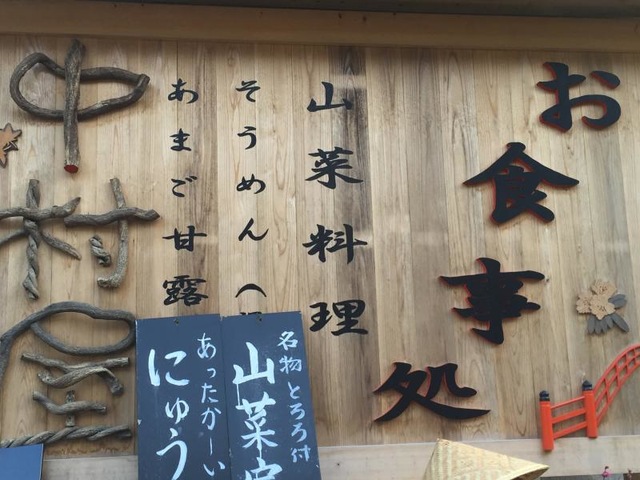 お食事処
山菜料理
そうめん（
あまご甘露
中村屋
名物とろろ付
山菜定
あったかーい
にゅう